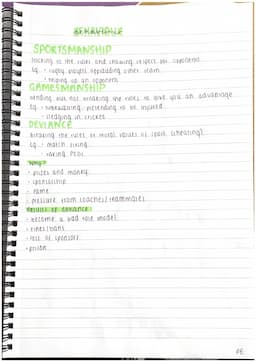 BEHAVIOUR
SPORTSMANSHIP
Sticking to the rules and showing respect for opponent
Eg. · rugby players applauding other team
· helping up an opponent
GAMESMANSHIP
Bending but not breaking the rules to give you an advantage
Eg. · timewasting, pretending to be injured
· sledging in cricket
DEVIANCE
Breaking the rules or moral values of sport (cheating)
Eg. · match fixing
· taking PEDs
Why?
· prizes and money
· sponsorship
· fame
· pressure from coaches/teammates
Results of deviance
· become a bad role model
· fines/bans
· loss of sponsor
· prison
PE